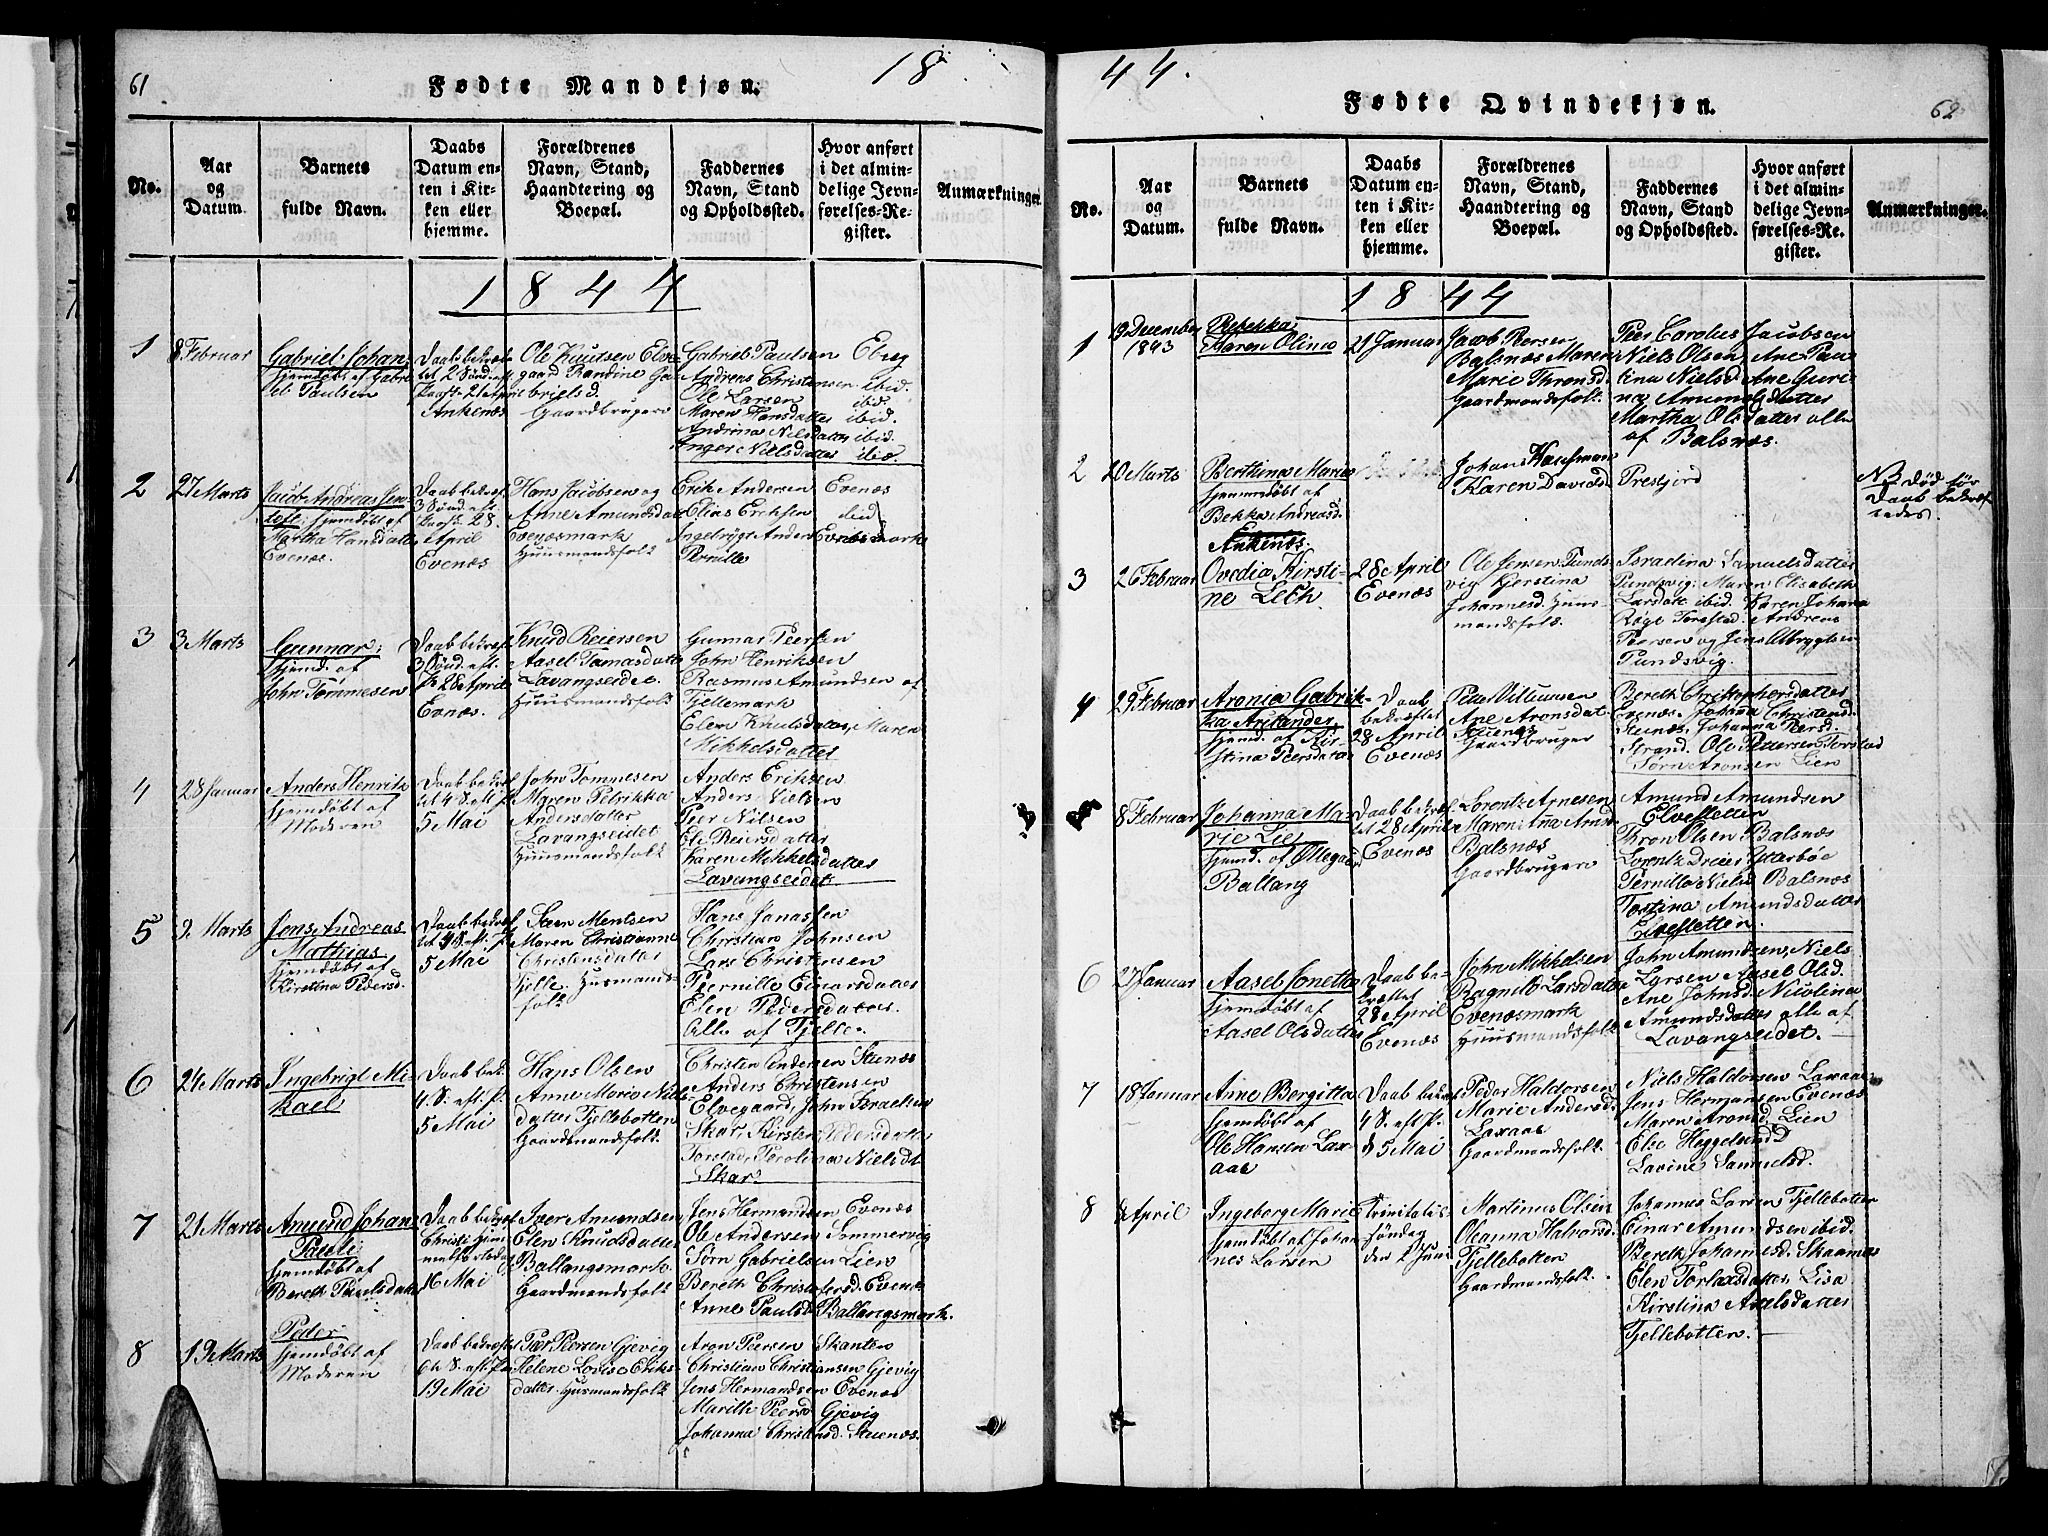 61
Fødte Mandkjøn.
18
No.
Aar
og
Datum.
Barnets
fulde Navn.
Daabs
Datum en-
ten i Kir-
ken eller
hjemme.
Forældrenes
Navn, Stand,
Haandtering og
Boepæl.
Faddernes
Navn, Stand
og Opholdssted.
Hvor anført
i det almin-
delige Jevn-
førelses-Re-
gister.
Anmærkninger.
1844
1
8 Februar
Gabriel Johan
hjemdøbt af Gabri
Paulsen
Daab bekræf
tet 2 Sønd. eft.
Paask. 21 April
Ankenæs
Ole Knutsen Elve-
gaard Bandine Ga-
brielsd.
Gaardbrugere
Gabriel Paulsen
Andreas Christensen ibid.
Ole Larsen ibid.
Maren Hansdatter ibid.
Andrina Nilsdatter ibid.
Inger Nielsdatter ibid.
2
27 Marts
Jacob Andreas
hjemdøbt af
Martha Hansdatter
Evenæs.
Daab bekræf.
3 Sønd. eft.
Paask. 28
April
Evenæs
Hans Jacobsen og
Anne Amundsdatt
Evenæsmark
Huusmandsfolk
Erik Andersen Evenæs
Elias Eriksen ibid
Pernille
Evenæsmark
3
3 Marts
Gunnar,
hjemd. af
John Tommesen
Daab bekræf
3 Sønd. eft.
P. 28 April
Evnæs.
Knud Reiersen
Aasel Tomasdatte
Lavangseidet.
Huusmandsfolk
Gunnar Peersen
John Henriksen
Rasmus Amundsen af
Fjellemark
Elen Knutsdatter, Maren
Mikkelsdatter
4
28 Januar
Anders Henrik
hjemdøbt af
Moderen
Daab bekræf
tet 4 S. eft. P.
5 Mai
John Tommesen
Maren Petrikka
Andersdatter
Lavangseidet
Huusmandsfolk
Anders Eriksen
Anders Nielsen
Peer Nilsen
Ele Reiersdatter
Karen Mikkelsdatter
Lavangseidet
5
9 Marts
Jens Andreas
Mathias
hjemdøbt af
Kirstina Pedersd.
Daab bekræf
tet 4 S. eft. P.
5 Mai
Steen Mentsen
Maren Christianne
Christensdatter
Fjelle. Husmands-
folk
Hans Jonassen
Christian Johnsen
Lars Christensen
Pernille Einarsdatter
Elen Pedersdatter
Alle af Fjelle.
6
24 Marts
Ingebrigt Mi-
kael
Daab bek.
4 S. eft. P.
5 Mai
Hans Olsen
Anne Marie Niels-
datter Fjellebotten
Gaardmandsfolk.
Christen Andersen Stenæs
Anders Christensen
Elvegaard, John Israelsen
Skar, Kirsten Pedersdatter
Torstad, Karolina Nielsdt
Skar
7
21 Marts
Amund Johan
Pauli
hjemdøbt af
Bereth Paulsdatter
Daab bekræf.
Christi Him-
melfartsdag
16 Mai
Iver Amundsen
Elen Knudsdatter
Ballangsmark
Gaardmandsfolk
Jens Hermandsen Evenæs
Ole Andersen Sommervig
Sørn Gabrielsen Lien
Bereth Christofersd. Evenæs
Anne Paulsd Ballangsmark.
8
19 Marts
Peder
hjemdøbt af
Moderen
Daab bekræft
6te S. eft. Paa
19 Mai
Peer Peersen Gjevig
Helene Lovise Eriks-
datter. Husmandsfolk
Aron Peersen
Christian Christiansen Gjevig
Jens Hermandsen Evenæs
Marith Peersd Gjevig
Johanna Christensd. Stuenæs.
44.
Fødte Qvindekjøn.
62
No.
Aar
og
Datum.
Barnets
fulde Navn.
Daabs
Datum en-
ten i Kir-
ken eller
hjemme.
Forældrenes
Navn, Stand,
Haandtering og
Boepæl.
Faddernes
Navn, Stand
og Opholdssted.
Hvor anført
i det almin-
delige Jevn-
førelses-Re-
gister.
Anmærkninger.
1844
1
19 December
1843
Rebekka
Maren Olina
21 Januar
Jacob Persen
Balsnæs Maren
Marie Thronsd.
Gaardmandsfolk.
Peer Carolus Jacobsen
Niels Olsen Ane Pau
lina Nielsd Ane Guri-
na Amundsdatter
Martha Olsdatter alle
af Balsnæs.
2
20 Marts
Berthina Maria
hjemmdøbt af
Bekka Andreasd.
Ankenæs.
Johan Kaufman
Karen Davidsd.
Presfjord
NB død før
Daab bekræf
tedes.
3
26 Februar
Ovedia Kirsti-
ne
28 April
Evenæs
Ole Jensen Punds
vig Kjerstina
Johannesd. Huus-
mandsfolk.
Israelina Samuelsdatter
Pundsvig: Maren Elisabeth
Larsdatt. ibid. Karen Johana
Torstad. Andreas
Peersen og Jens Albrygtsen
Pundsvig.
4
29 Februar
Aronia Gabrik-
ka
hjemd. af Kir-
stina Peersdatt
Daab
bekræftet
28 April
Evenæs
Ane Aronsdat.
Stuenæs
Gaardbruger
Bereth Christophersdatter
Evenæs. Johanna Christensd.
Stuenæs, Johanna Persd.
Strand. Ole Petersen Torstad
Sørn Aronsen Lien
8 Februar
Johanna Ma-
rie
hjemd. af
Ballang
Daab bekræf-
tet 28 April
Evenæs
Lorentz Arnesen
Maren Anna Amd.
Balsnæs
Gaardbrugere
Amund Amundsen
Elvesletten
Thron Olsen Balsnæs
Lorentz Dreier
Pernille Nielsd Balsnæs
Tostina Amundsdatter
Elvesletten.
6
27 Januar
Aasel Jonetta
hjemdøbt af
Aasel Olsdatter
Daab be-
kræftet
28 April
Evenæs
John Mikkelsen
Ragnild Larsdatter
Evenæsmark
Huusmandsfolk
John Amundsen, Niels
Larsen Aasel Olsd.
Ane Johnsd. Nicolina
Amundsdatter alle af
Lavangseidet.
7
18 Januar
Anne Bergitta
hjemdøbt af
Ole Hansen Lax-
aae
Daab bekræf
4 S. eft P.
d 5 Mai
Peder Haldorsen
Marie Andersd.
Laxaae
Gaardmandsfolk.
Niels Haldorsen Laxaae
Jens Hermansen Evenæs
Maren Aronsd. Lien
Else Heggelund
Lavine Samuelsd.
8
April
Ingeborg Marie
hjemdøbt af Johan
nes Larsen
Trinitatis-
søndag
den 2 Juni
Martinus Olsen
Oleanna Halvorsd.
Fjellebotten
Gaardmandsfolk.
Johannes Larsen Fjellebotten
Einar Amundsen ibid.
Bereth Johannesd. Skaanæs
Elen Torlaxsdatter, Lisa
Kirstina Axelsdatter
Fjellebotten.